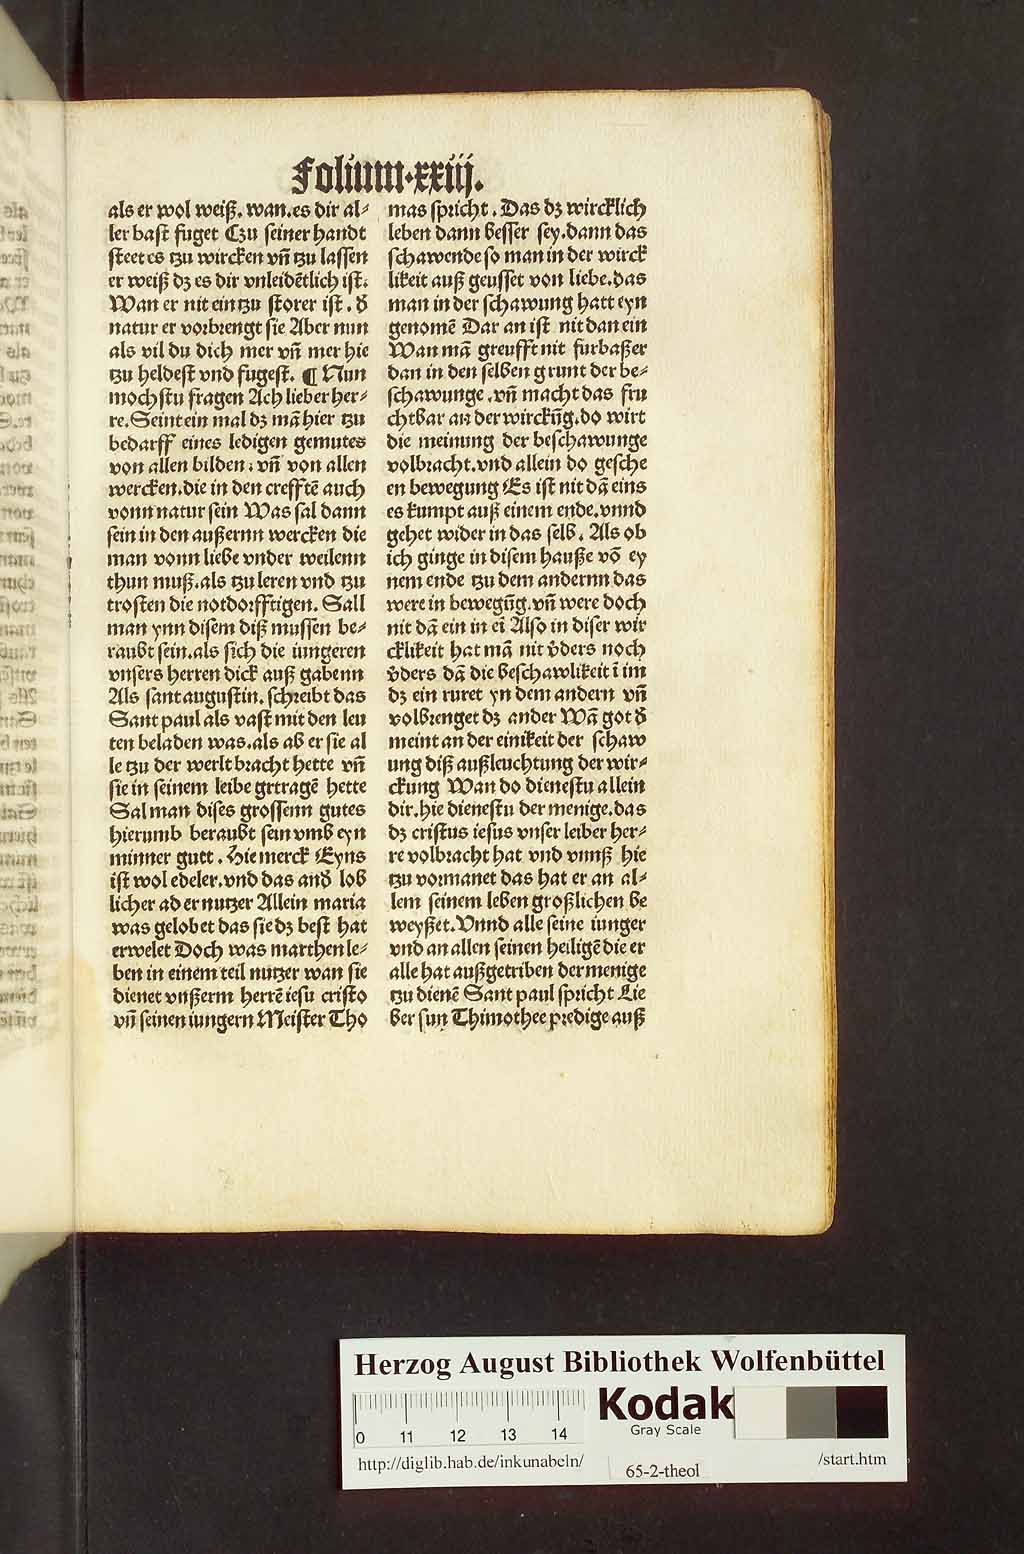 Folium·xxiij.
als er wol weiß. wan.es dir al⸗
ler bast fuget Czu seiner handt
steet es tzu wircken vn̄ tzu lassen
er weiß dz es dir vnleidētlich ist.
Wan er nit ein tzu storer ist. d̕
natur er vorbrengt sie Aber nun
als vil du dich mer vn̄ mer hie
tzu heldest vnd fugest. ¶ Nun
mochstu fragen Ach lieber her⸗
re. Seint ein mal dz mā hier tzu
bedarff eines ledigen gemutes
von allen bilden. vn̄ von allen
wercken. die in den crefftē auch
vonn natur sein Was sal dann
sein in den außernn wercken die
man vonn liebe vnder weilenn
thun muß. als tzu leren vnd tzu
trosten die notdorfftigen. Sall
man ynn disem diß mussen be⸗
raubt sein. als sich die iungeren
vnsers herren dick auß gabenn
Als sant augustin. schreibt das
Sant paul als vast mit den leu
ten beladen was. als ab er sie al
le tzu der werlt bracht hette vn̄
sie in seinem leibe getragē hette
Sal man dises grossenn gutes
hierumb beraubt sein vmb eyn
minner gutt. Hie merck Eyns
ist wol edeler. vnd das and̕ lob
licher ad er nutzer Allein maria
was gelobet das sie dz best hat
erwelet Doch was marthen le⸗
ben in einem teil nutzer wan sie
dienet vnßerm herrē iesu cristo
vn̄ seinen iungern Meister Tho
mas spricht. Das dz wircklich
leben dann besser sey. dann das
schawende so man in der wirck
likeit auß geusset von liebe. das
man in der schawung hatt eyn
genomē Dar an ist nit dan ein
Wan mā greufft nit furbaßer
dan in den selben grunt der be⸗
schawunge. vn̄ macht das fru
chtbar an der wirckūg. do wirt
die meinung der beschawunge
volbracht. vnd allein do gesche
en bewegung Es ist nit dā eins
es kumpt auß einem ende. vnnd
gehet wider in das selb. Als ob
ich ginge in disem hauße vō ey
nem ende tzu dem andernn das
were in bewegūg. vn̄ were doch
nit dā ein in eī Also in diser wir
cklikeit hat mā nit v̕ders noch
v̕ders dā die beschawlikeit ī im
dz ein ruret yn dem andern vn̄
volbrenget dz ander Wā got d̕
meint an der einikeit der schaw
ung diß außleuchtung der wir⸗
ckung Wan do dienestu allein
dir. hie dienestu der menige. das
dz cristus iesus vnser leiber her⸗
re volbracht hat vnd vnnß hie
tzu vormanet das hat er an al⸗
lem seinem leben großlichen be
weyßet. Vnnd alle seine iunger
vnd an allen seinen heiligē die er
alle hat außgetriben der menige
tzu dienē Sant paul spricht Lie
ber sun Thimothee predige auß
Herzog August Bibliothek Wolfenbüttel
0 11 12 13 14
Kodak
Gray Scale
http://diglib.hab.de/inkunabeln/
65-2-theol
/start.htm